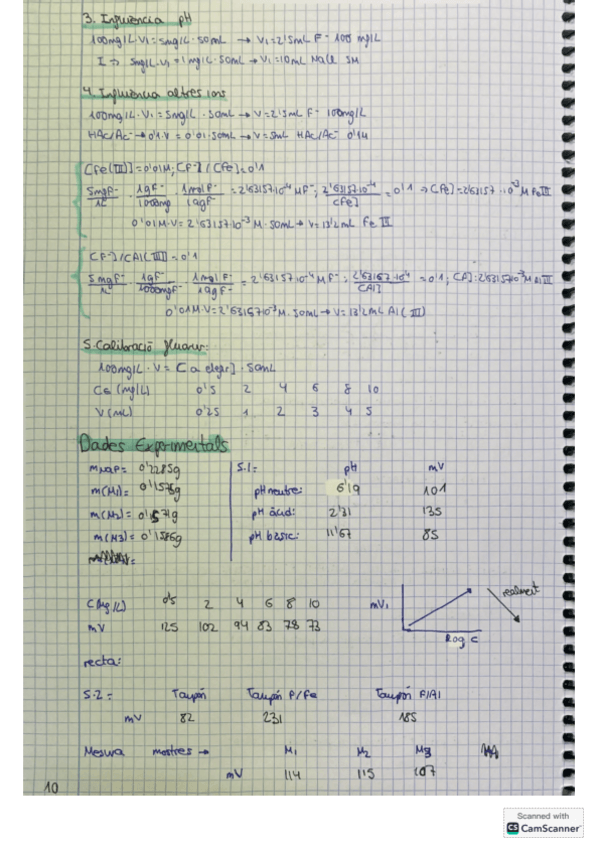 3. Influència pH
100mg/L·V₁=5mg/L·50mL → V₁=2'5mL F⁻ 100 mg/L
I ⇒ 5mg/L·V₁=1mg/L·50mL → V₁=10mL NaCl 5M
4. Influència altres ions
100mg/L·V₁=5mg/L·50mL → V=2'5mL F⁻ 100mg/L
HAc/Ac⁻ → 0'1·V=0'01·50mL → V=5mL HAc/Ac⁻ 0'1M
[Fe(III)]=0'01M; [F⁻]/[Fe]=0'1
5mgF⁻/1L · 1gF⁻/1000mg · 1molF⁻/19gF = 2'63157·10⁻⁴MF⁻; 2'63157·10⁻⁴/[Fe] = 0'1 ⇒ [Fe]=2'63157·10⁻³M Fe III
0'01M·V=2'63157·10⁻³M·50mL → V=13'2mL Fe III
[F⁻]/[Al(III)]=0'1
5mgF⁻/1L · 1gF⁻/1000mgF⁻ · 1molF⁻/19gF⁻ = 2'63157·10⁻⁴MF⁻; 2'63157·10⁻⁴/[Al] = 0'1; [Al]=2'63157·10⁻³M Al III
0'01M·V=2'63157·10⁻³M·50mL → V=13'2mL Al(III)
5. Calibració fluorur:
100mg/L·V=[a elegir]·50mL
(mg/L) 0'5 2 4 6 8 10
V(mL) 0'25 1 2 3 4 5
Dades Experimentals
mNaF= 0'2285g S.1= pH mV
m(M1)= 0'1576g pH neutre: 6'19 101
m(M2)= 0'1571g pH àcid: 2'31 135
m(M3)= 0'1586g pH bàsic: 11'67 85
C(mg/L) 0'5 2 4 6 8 10 mV₁ realment
mV 125 102 94 83 78 73 log c
recta:
S.2= Tampón Tampón F/Fe Tampón F/Al
mV 82 231 185
Mesura mostres → M1 M2 M3
mV 114 115 107
10
Scanned with
CS CamScanner